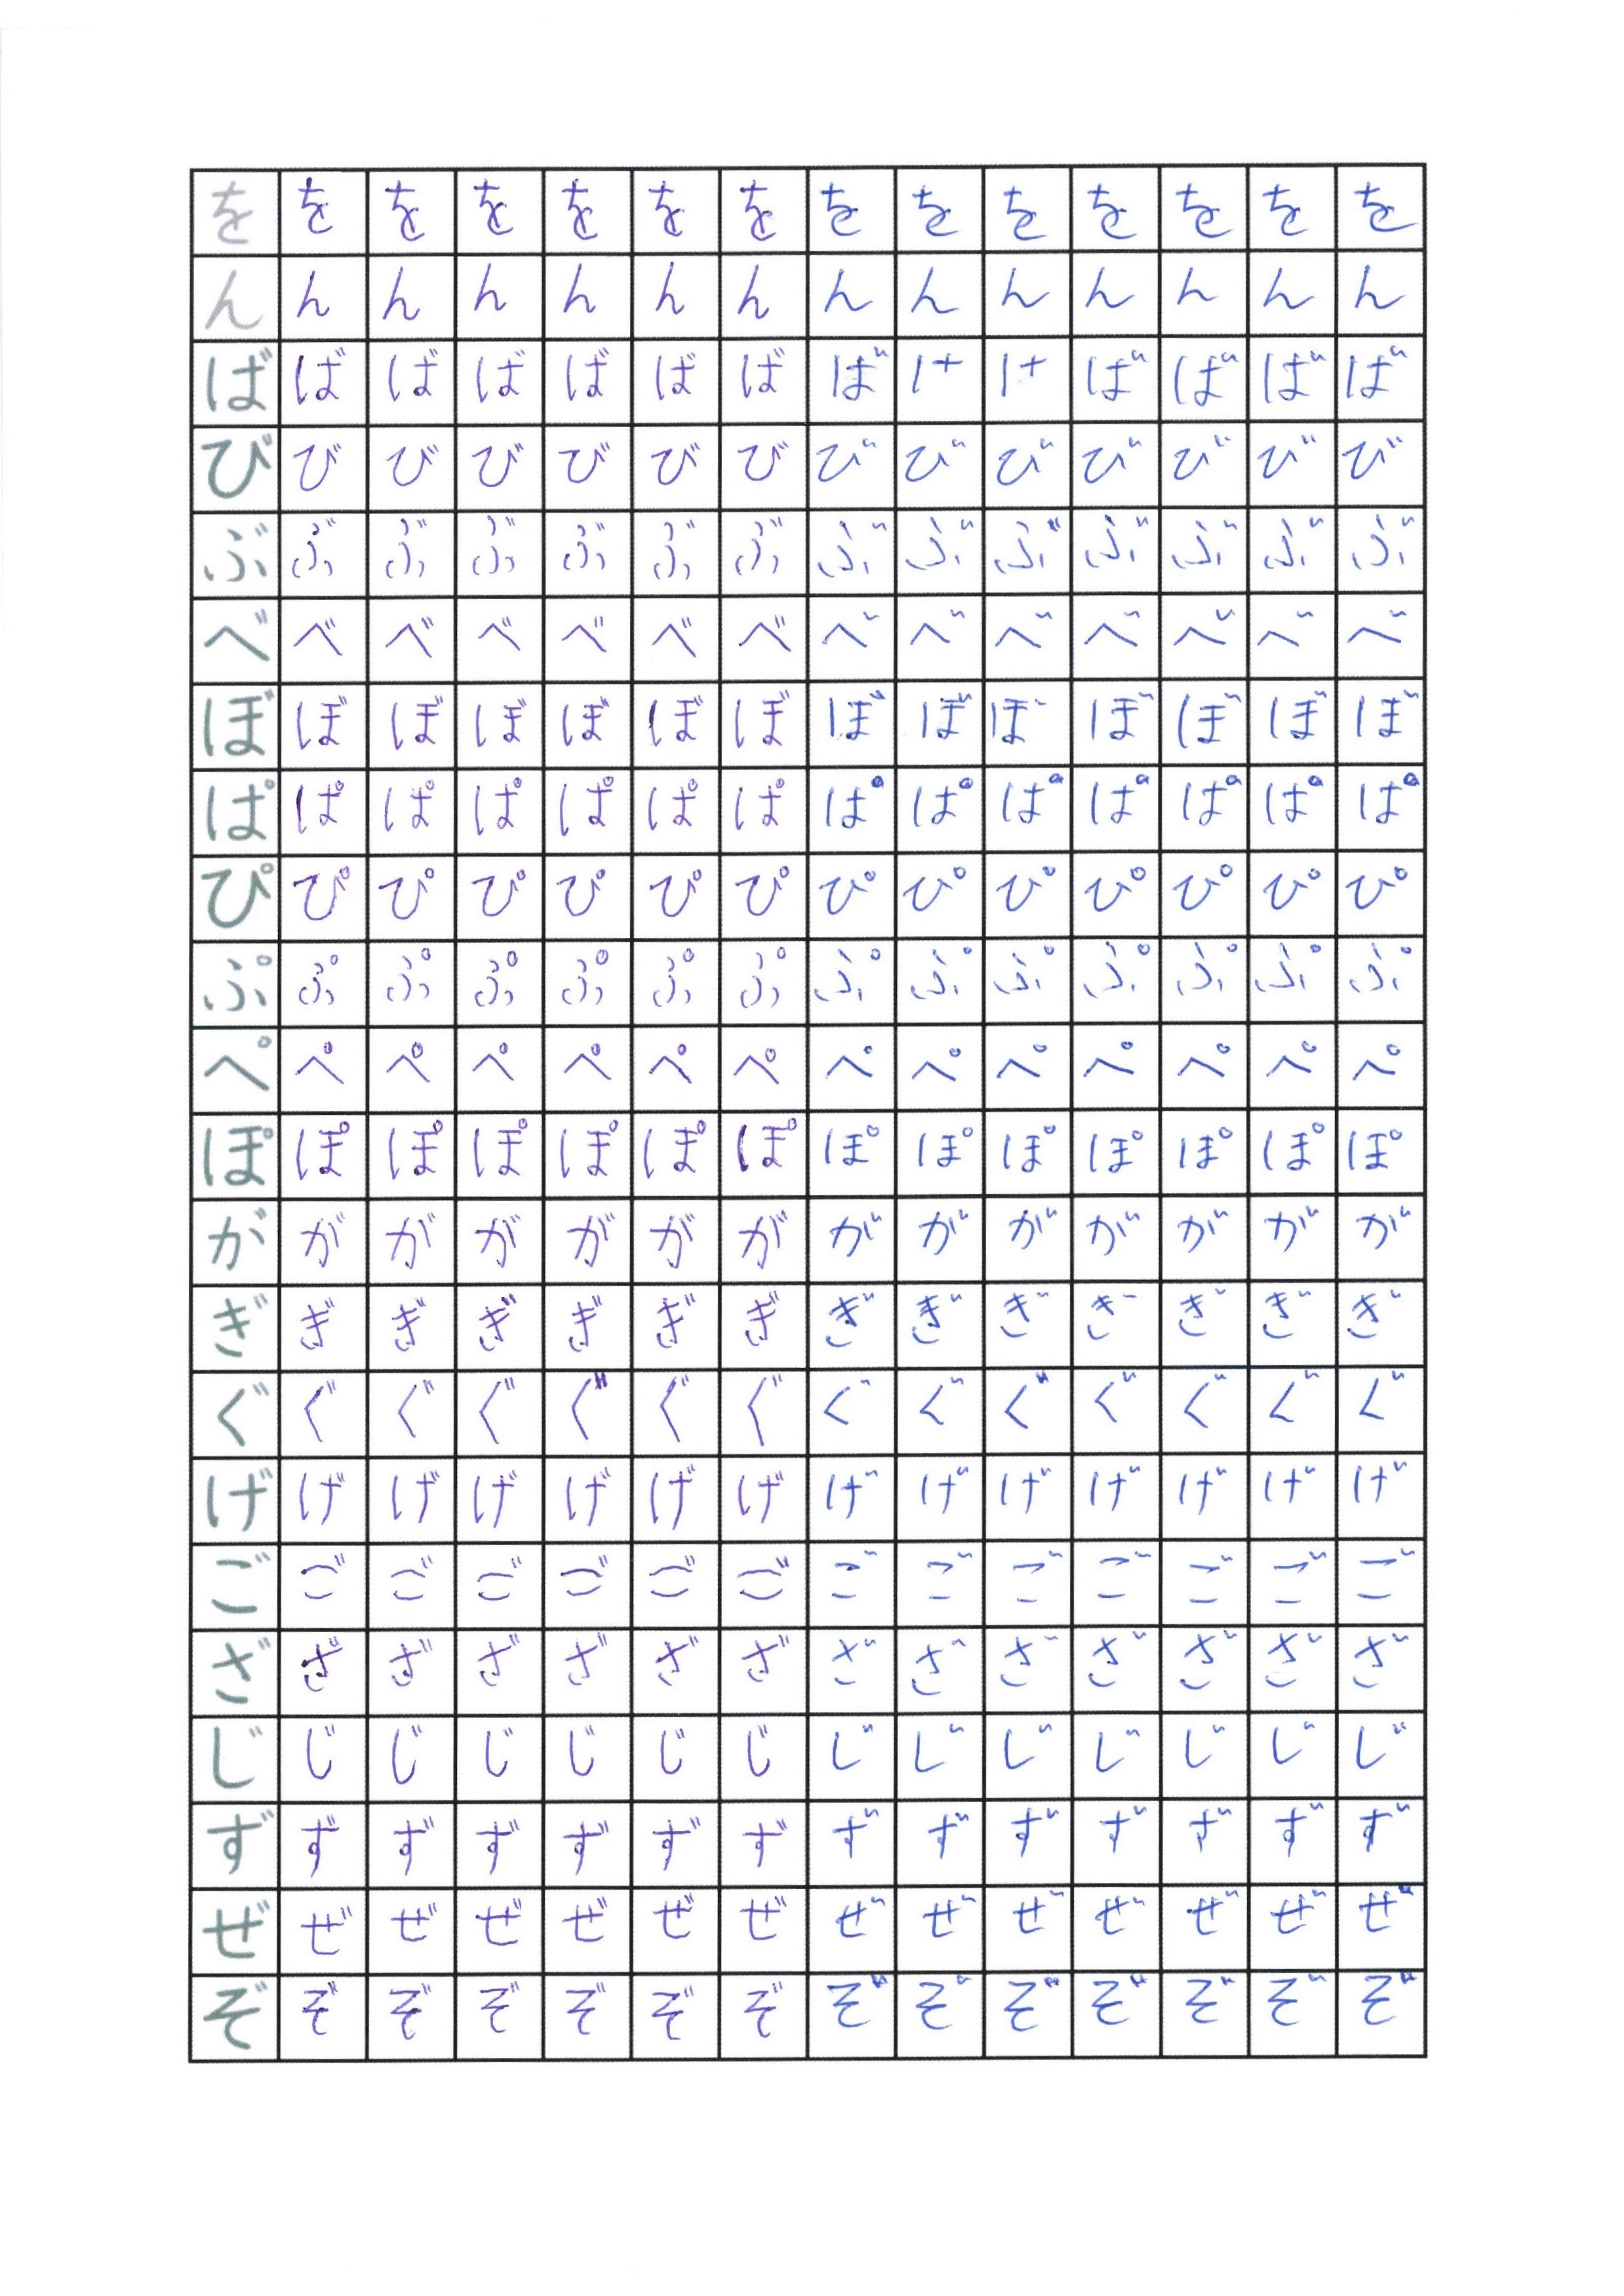 を を を を を を を を を を を を を を
ん ん ん ん ん ん ん ん ん ん ん ん ん ん
ば ば ば ば ば ば ば ば ば ば ば ば
び び び び び び び び び び び び び び
ぶ ぶ ぶ ぶ ぶ ぶ ぶ ぶ ぶ ぶ ぶ ぶ ぶ ぶ
べ べ べ べ べ べ べ べ べ べ べ べ べ べ
ぼ ぼ ぼ ぼ ぼ ぼ ぼ ぼ ぼ ぼ ぼ ぼ ぼ ぼ
ぱ ぱ ぱ ぱ ぱ ぱ ぱ ぱ ぱ ぱ ぱ ぱ ぱ ぱ
ぴ ぴ ぴ ぴ ぴ ぴ ぴ ぴ ぴ ぴ ぴ ぴ ぴ ぴ
ぷ ぷ ぷ ぷ ぷ ぷ ぷ ぷ ぷ ぷ ぷ ぷ ぷ ぷ
ぺ ぺ ぺ ぺ ぺ ぺ ぺ ぺ ぺ ぺ ぺ ぺ ぺ ぺ
ぽ ぽ ぽ ぽ ぽ ぽ ぽ ぽ ぽ ぽ ぽ ぽ ぽ ぽ
が が が が が が が が が が が が が が
ぎ ぎ ぎ ぎ ぎ ぎ ぎ ぎ ぎ ぎ ぎ ぎ ぎ ぎ
ぐ ぐ ぐ ぐ ぐ ぐ ぐ ぐ ぐ ぐ ぐ ぐ ぐ ぐ
げ げ げ げ げ げ げ げ げ げ げ げ げ げ
ご ご ご ご ご ご ご ご ご ご ご ご ご ご
ざ ざ ざ ざ ざ ざ ざ ざ ざ ざ ざ ざ ざ ざ
じ じ じ じ じ じ じ じ じ じ じ じ じ じ
ず ず ず ず ず ず ず ず ず ず ず ず ず ず
ぜ ぜ ぜ ぜ ぜ ぜ ぜ ぜ ぜ ぜ ぜ ぜ ぜ ぜ
ぞ ぞ ぞ ぞ ぞ ぞ ぞ ぞ ぞ ぞ ぞ ぞ ぞ ぞ